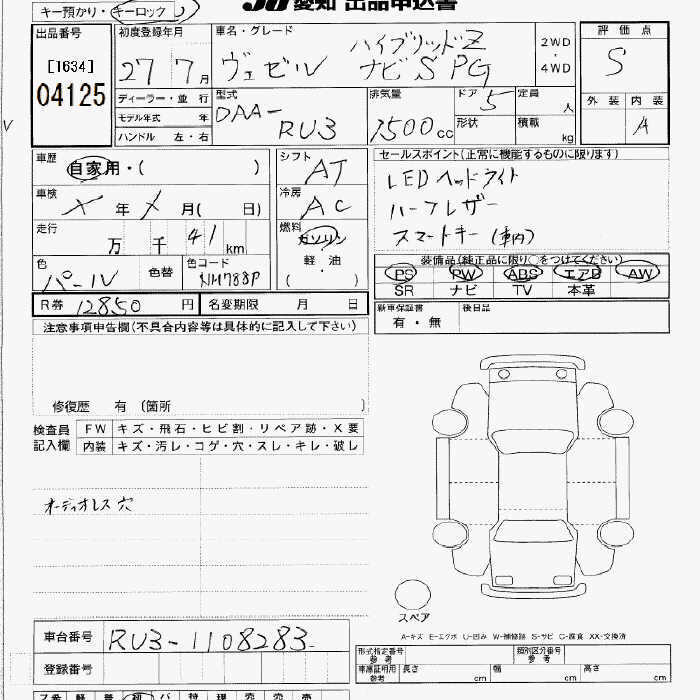 キー預かり・キーロック
JU 愛知 出品申込書
出品番号
[1634]
04125
初度登録年月
27 7月
車名・グレード
ハイブリッドZ
ヴェゼル ナビSPG
2WD
・
4WD
評価点
S
外装 内装
A
ディーラー・並行
モデル年式 年
ハンドル 左・右
型式
DAA-
RU3
排気量
1500cc
ドア 5
形状
定員 人
積載 kg
車歴
自家用・( )
車検
年 月( 日)
走行
万 千 41 km
色
パール 色替
色コード
NH788P
シフト
AT
冷房
AC
燃料
ガソリン
軽・油
( )
セールスポイント(正常に機能するものに限ります)
LEDヘッドライト
ハーフレザー
スマートキー(車内)
装備品(純正品に限り○をつけてください)
PS PW ABS エアB AW
SR ナビ TV 本革
R券 12850 円 名変期限 月 日
新車保証書
有・無
後日品
注意事項申告欄(不具合内容等は具体的に記入して下さい)
修復歴 有 (箇所 )
検査員
記入欄
FW キズ・飛石・ヒビ割・リペア跡・X要
内装 キズ・汚レ・コゲ・穴・スレ・キレ・破レ
オーディオレス穴
スペア
A-キズ E-エクボ U-凹み W-補修跡 S-サビ C-腐食 XX-交換済
車台番号 RU3-1108283
登録番号
型式指定番号
参考
類別区分番号
参考
車庫証明用
参考
長さ cm 幅 cm 高さ cm